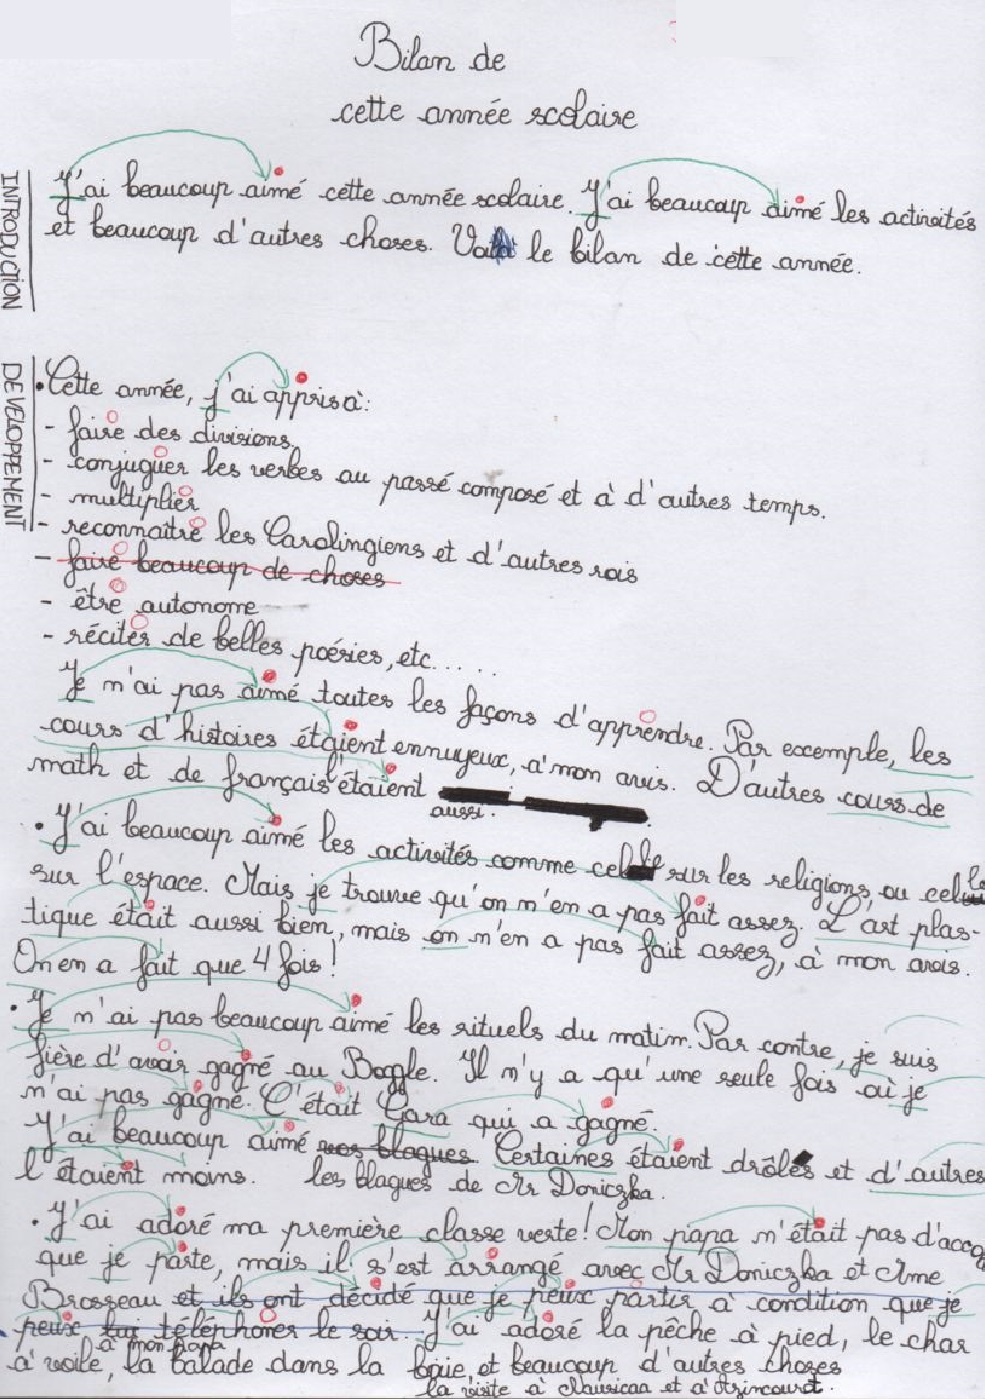 Bilan de
cette année scolaire
INTRODUCTION
J'ai beaucoup aimé cette année scolaire. J'ai beaucoup aimé les activités
et beaucoup d'autres choses. Voilà le bilan de cette année.
DEVELOPPEMENT
• Cette année, j'ai appris à:
- faire des divisions.
- conjuguer les verbes au passé composé et à d'autres temps.
- multiplier
- reconnaître les Carolingiens et d'autres rois
- faire beaucoup de choses
- être autonome
- réciter de belles poésies, etc.....
Je m'ai pas aimé toutes les façons d'apprendre. Par exemple, les
cours d'histoires étaient ennuyeux, a' mon avis. D'autres cours de
math et de français l'étaient
aussi.
• J'ai beaucoup aimé les activités comme celle sur les religions ou celle
sur l'espace. Mais je trouve qu'on m'en a pas fait assez. L'art plas-
tique était aussi bien, mais on n'en a pas fait assez, à mon avis.
On en a fait que 4 fois!
• Je n'ai pas beaucoup aimé les rituels du matin. Par contre, je suis
fière d'avoir gagné au Boggle. Il n'y a qu'une seule fois où je
n'ai pas gagné. C'était Cara qui a gagné.
J'ai beaucoup aimé vos blagues. Certaines étaient drôles et d'autres
l'étaient moins. les blagues de Mr Doniczka.
• J'ai adoré ma première classe verte! Mon papa n'était pas d'accord
que je parte, mais il s'est arrangé avec Mr Doniczka et Mme
Brosseau et ils ont décidé que je peux partir à condition que je
peux lui téléphoner le soir. J'ai adoré la pêche à pied, le char
à mon papa
à voile, la balade dans la baie, et beaucoup d'autres choses
la visite à Nausicaa et a' Azincourt.